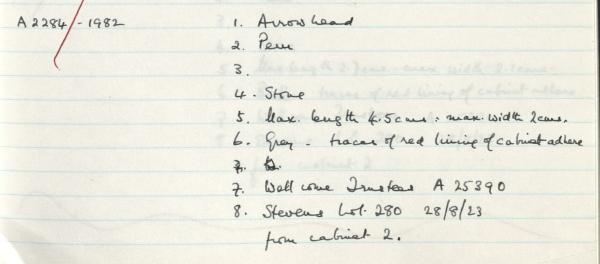 A2284/-1982 1. Arrowhead
2. Peru
3.
4. Stone
5. Max. length 4.5cms. max. width 2cms.
6. Grey - traces of red lining of cabinet adhere
7. Wellcome Trustees A 25390
8. Stevens Lot. 280 28/8/23
from cabinet 2.